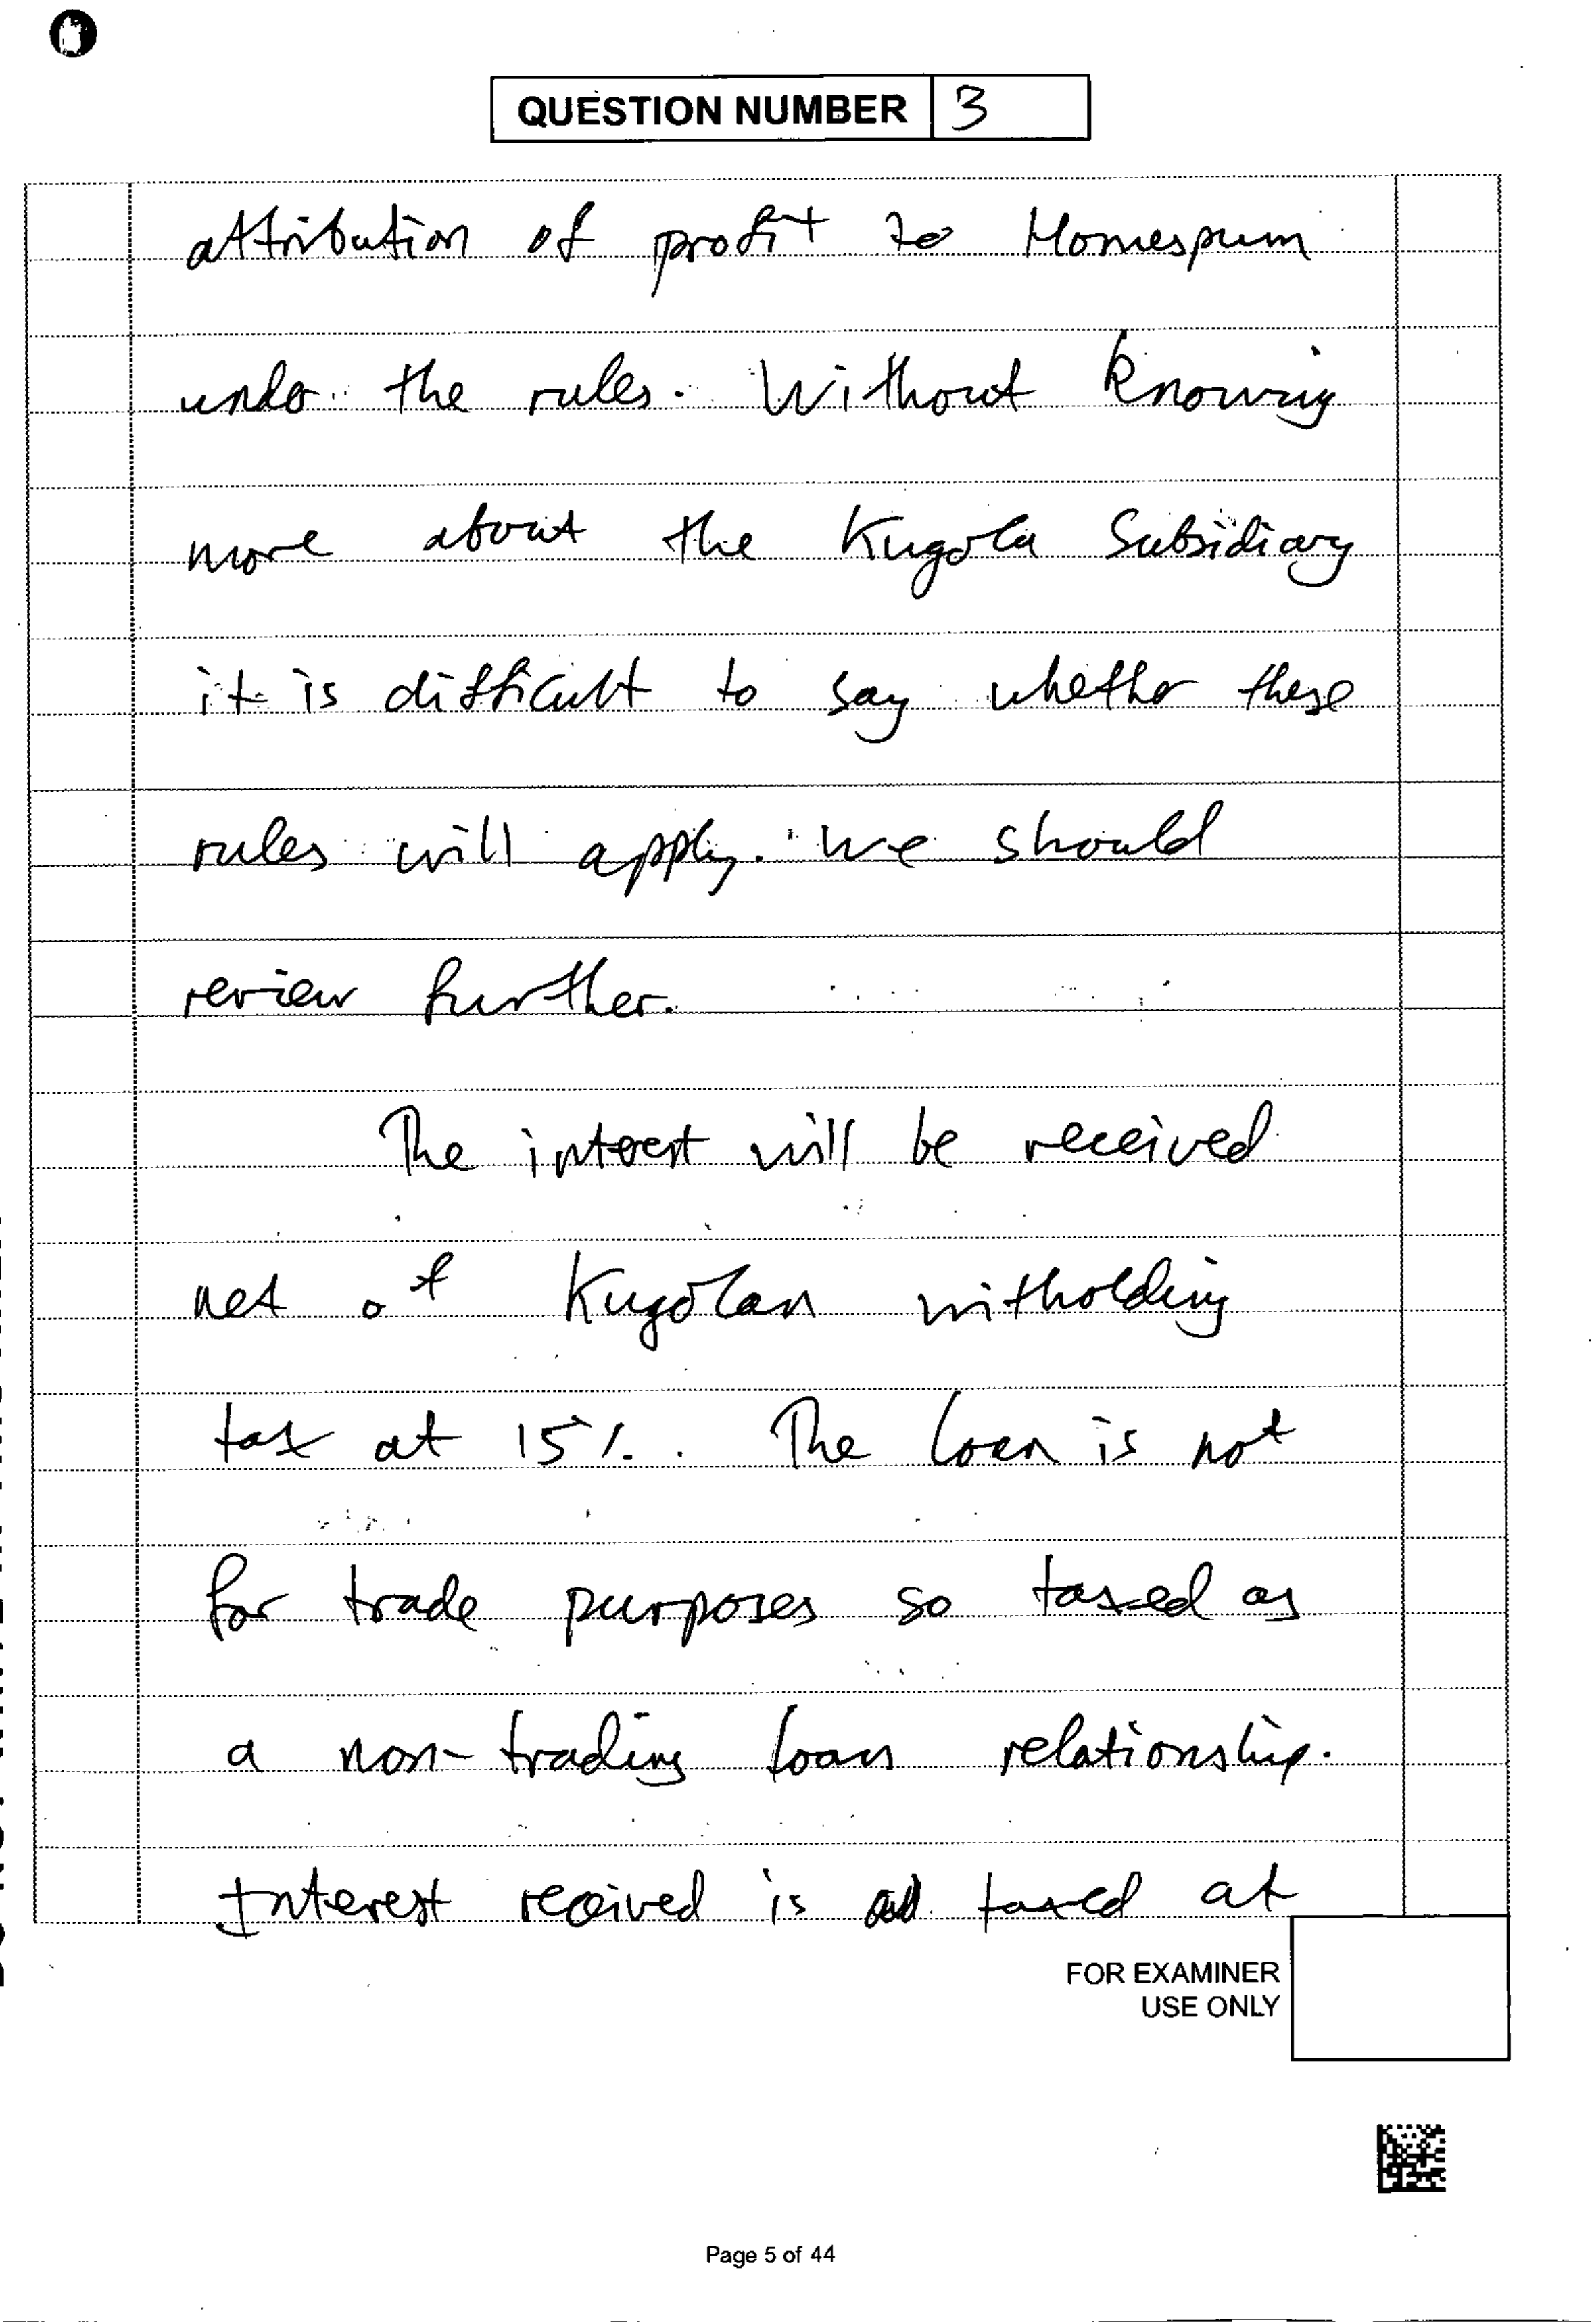 QUESTION NUMBER 3
attribution of profit to Homespum
under the rules. Without knowing
more about the Kugola Subsidiary
it is difficult to say whether these
rules will apply. We should
review further.
The interest will be received
net of Kugolan witholding
tax at 15%. The loan is not
for trade purposes so taxed as
a non-trading loan relationship.
Interest received is taxed at
FOR EXAMINER
USE ONLY
Page 5 of 44